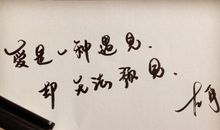 愛是一种遇见.
却无法预见.